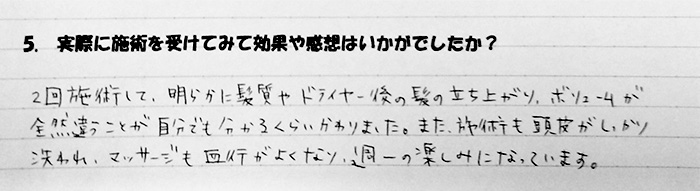 5. 実際に施術を受けてみて効果や感想はいかがでしたか？
2回施術して、明らかに髪質やドライヤー後の髪の立ち上がり、ボリュームが
全然違うことが自分でも分かるくらいかわりました。また、施術も頭皮がしっかり
洗われ、マッサージも血行がよくなり、週一の楽しみになっています。